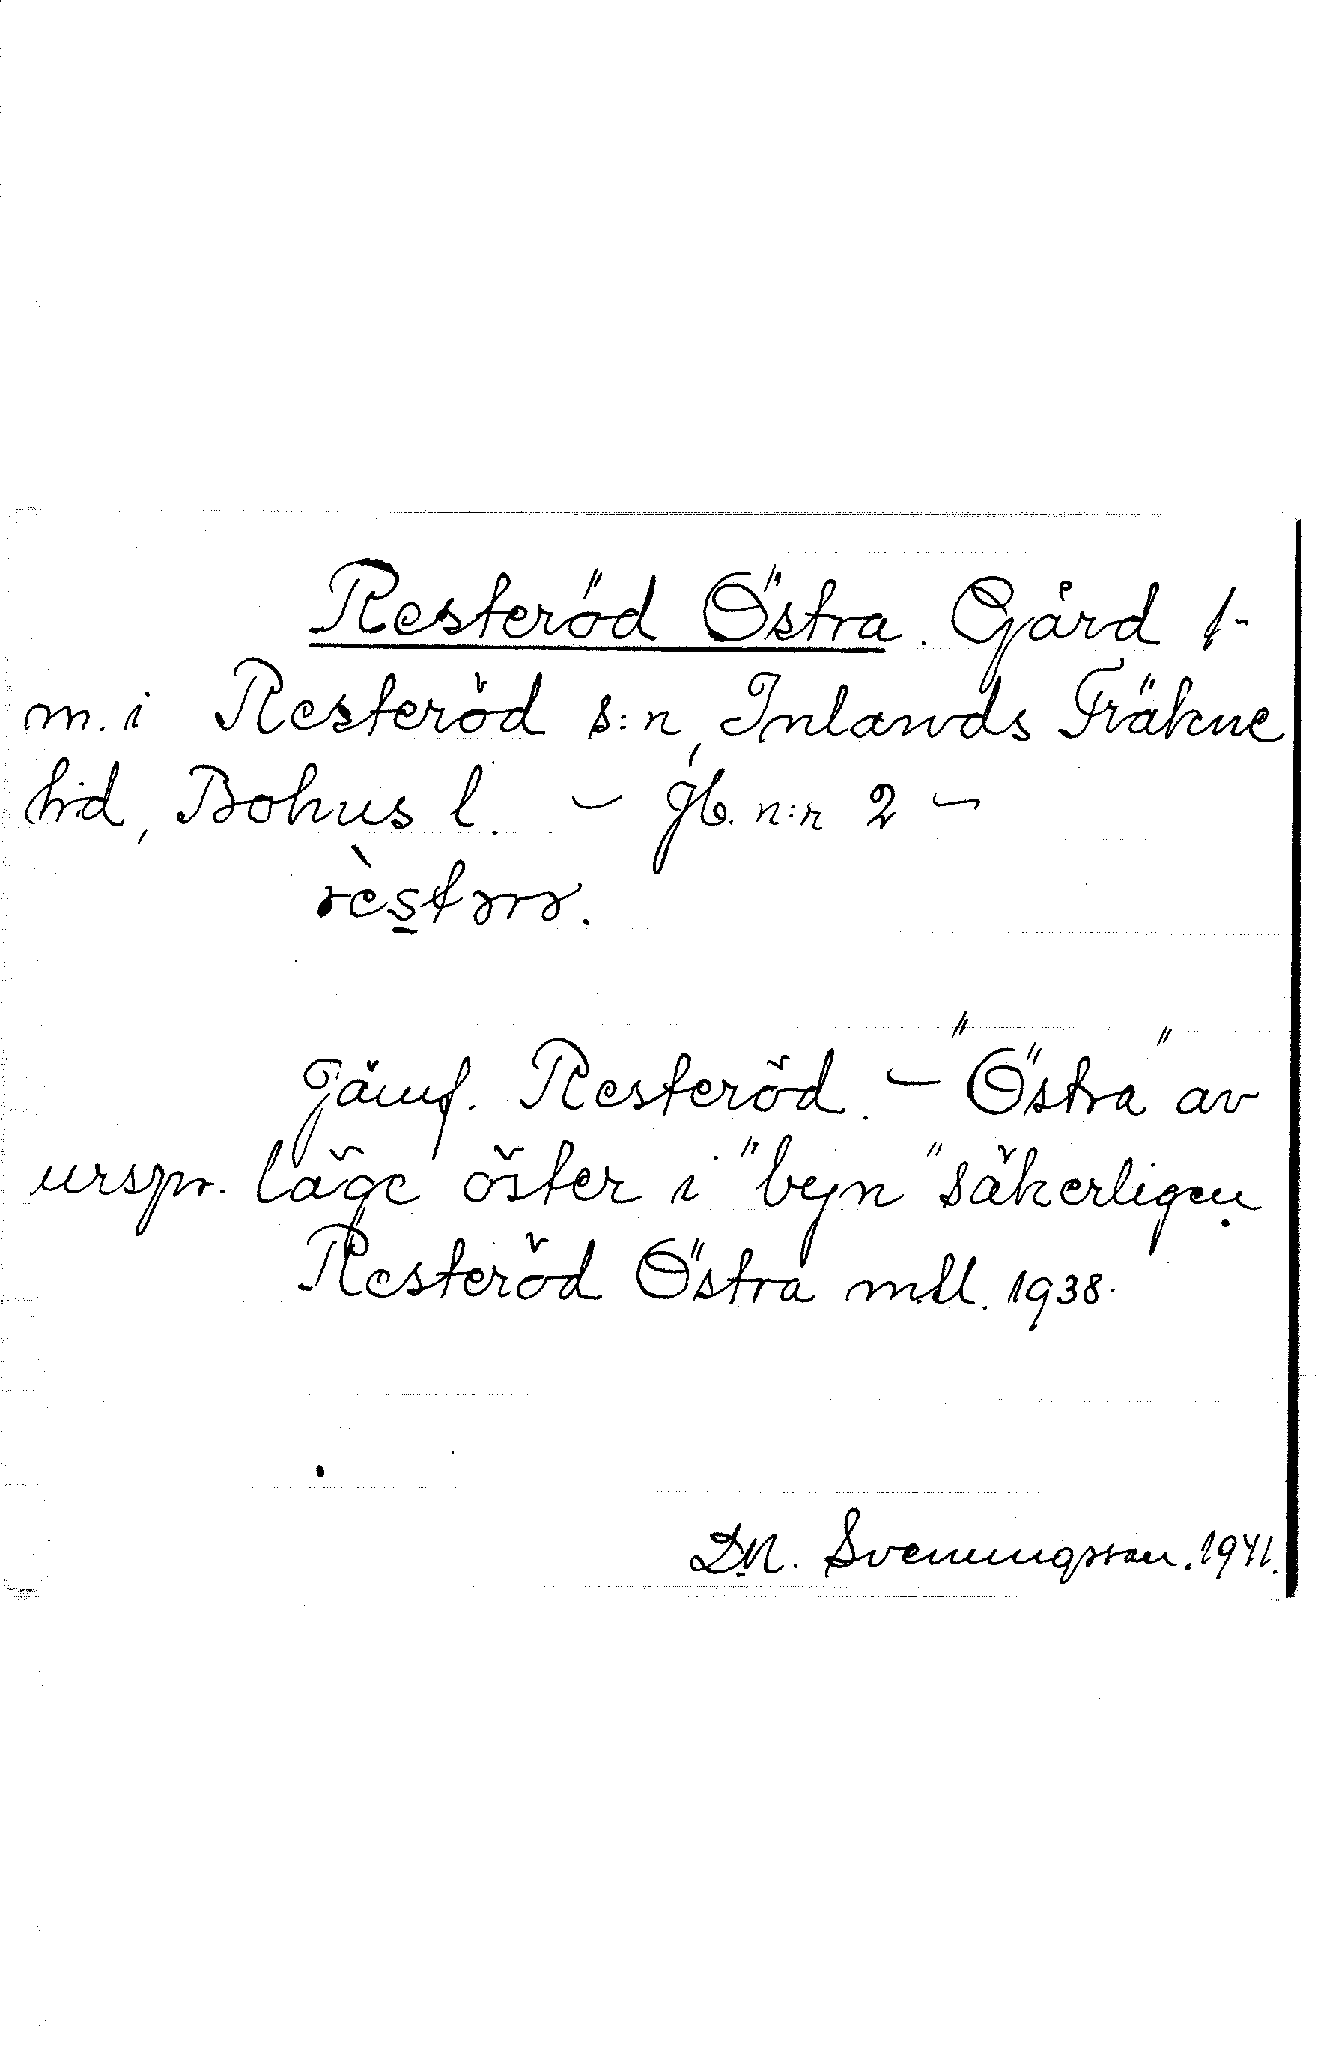 Resteröd Östra. Gård 1-
m. i Resteröd s:n, Inlands Fräkne
hd, Bohus l. – jb. n:r 2 –
Jämf. Resteröd. – "Östra" av
urspr. läge öster i "byn" säkerligen.
Resteröd Östra mll. 1938.
D.N. Svenningsson. 1941.